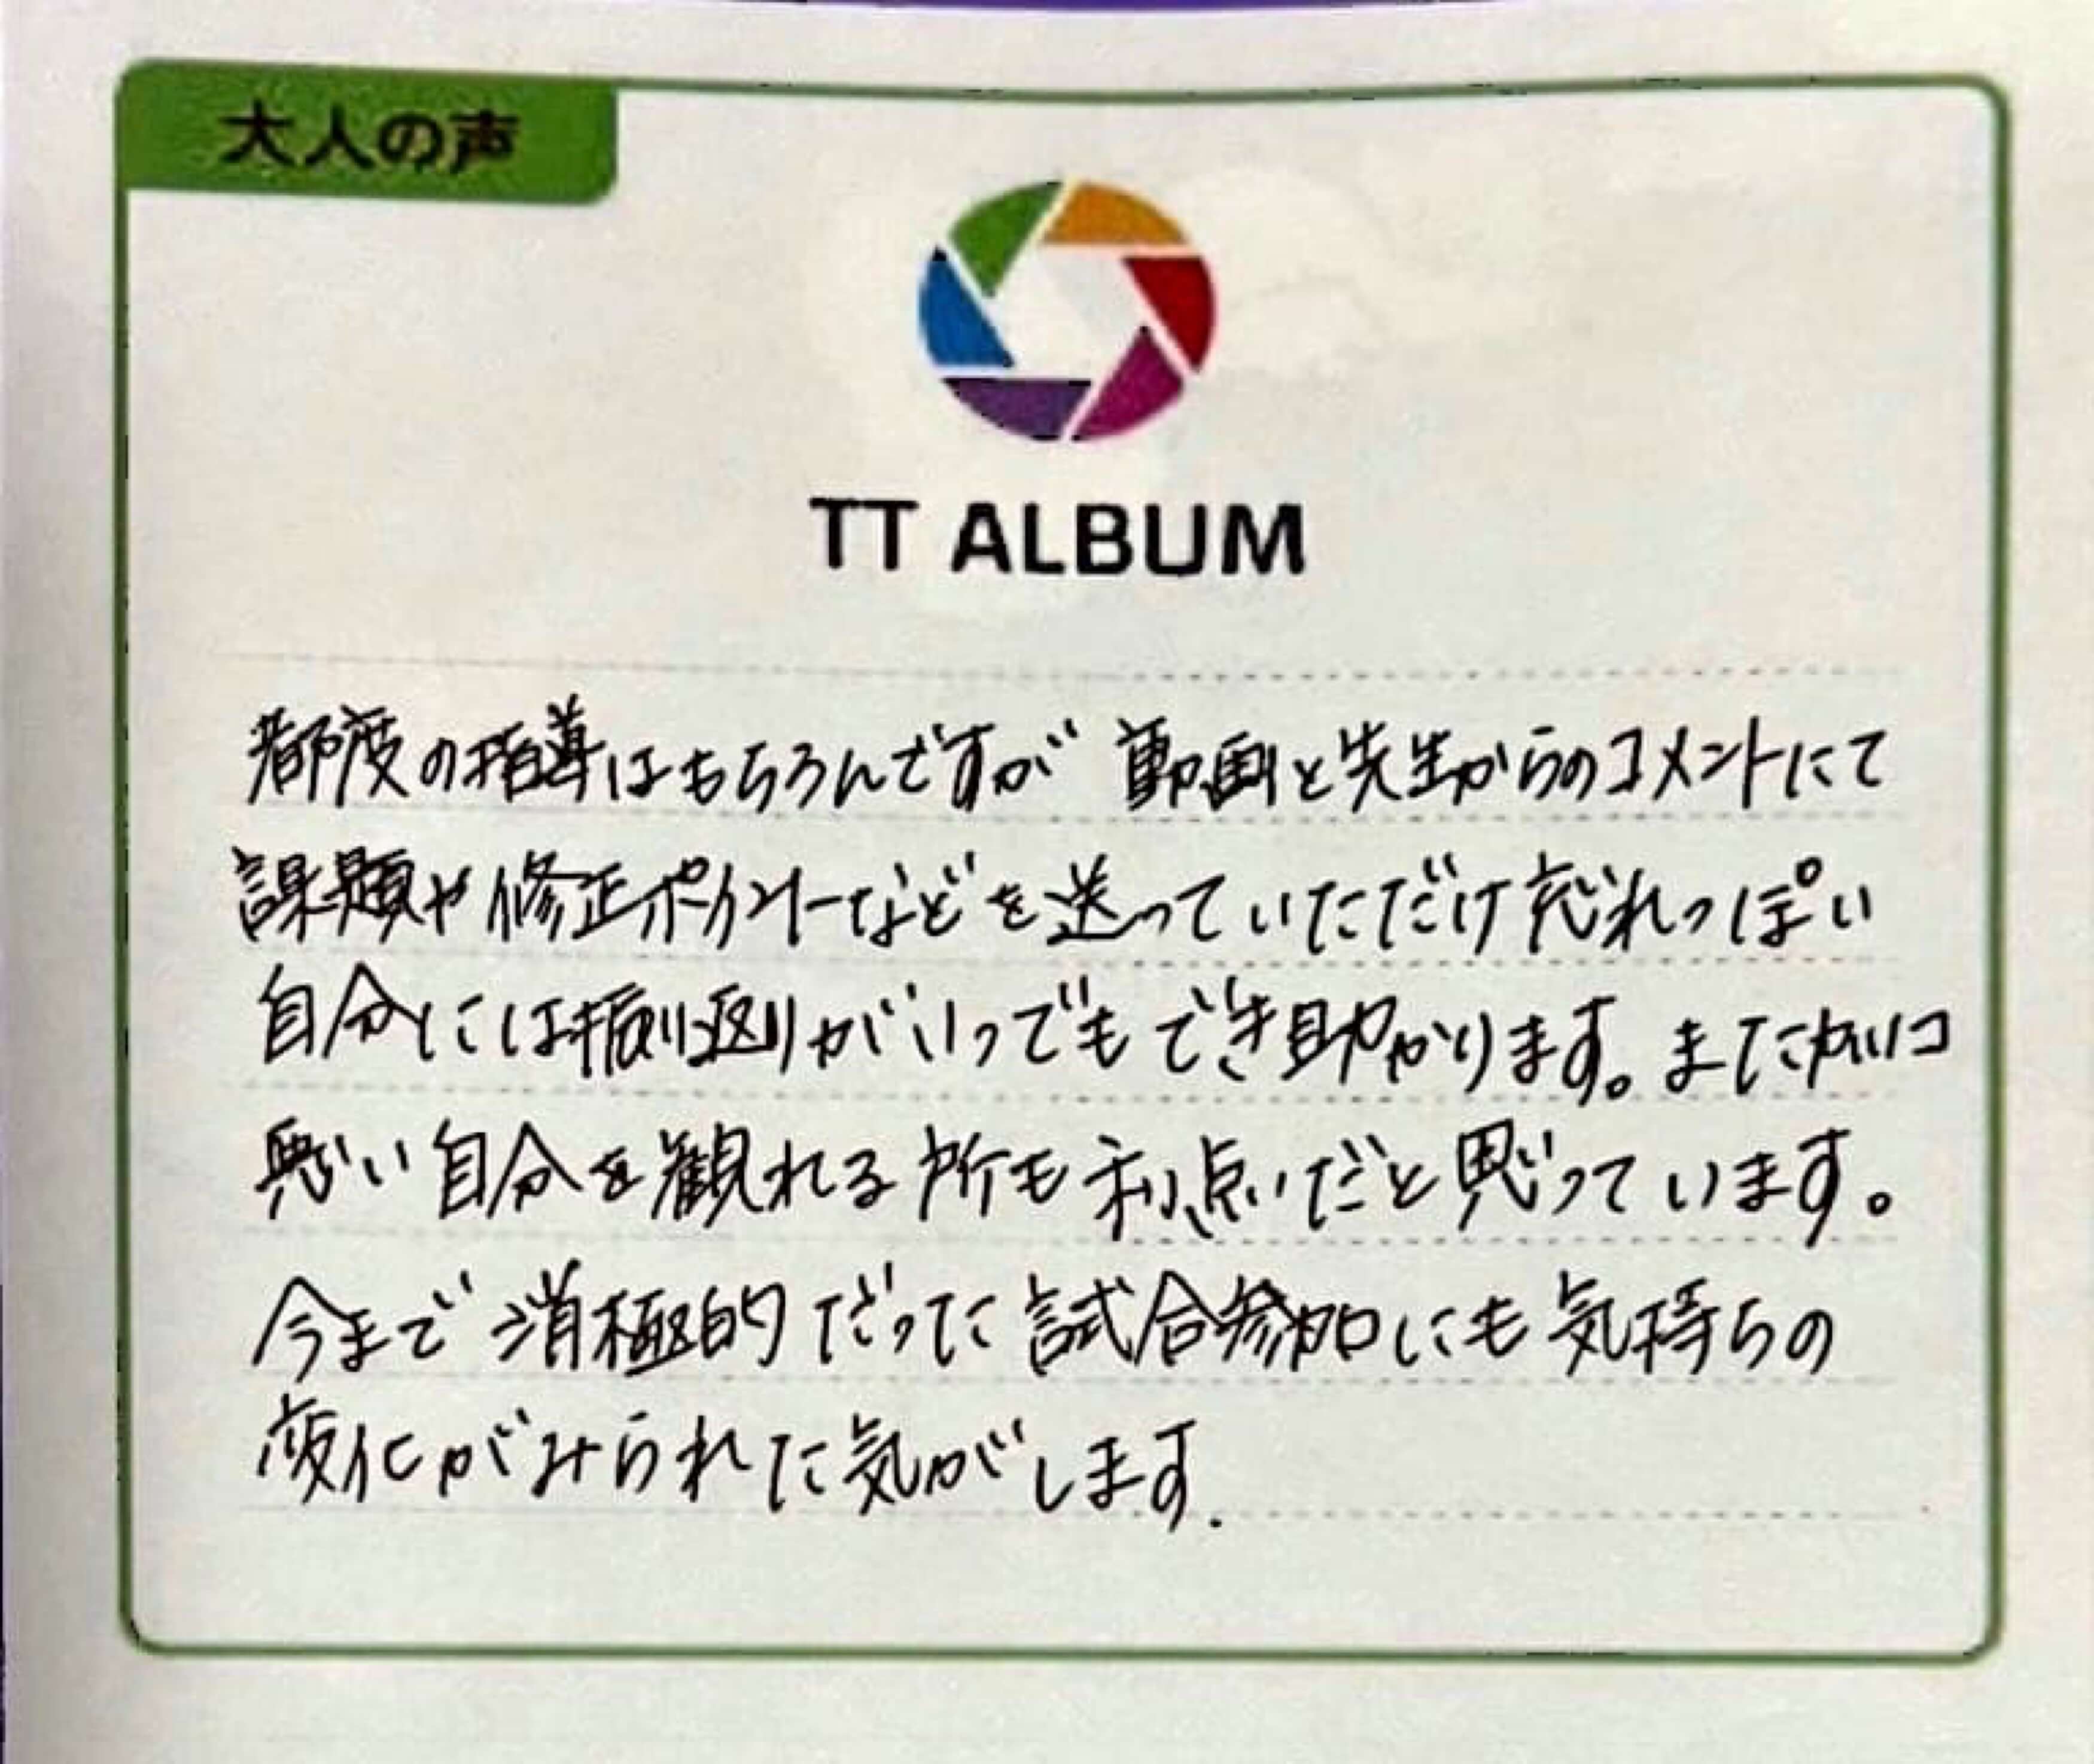 大人の声
TT ALBUM
都度の指導はもちろんですが 動画と先生からのコメントにて
課題や修正ポイントなどを送っていただけ忘れっぽい
自分には振り返りがいつでもでき助かります。またカッコ
悪い自分を観れる所も利点だと思っています。
今まで消極的だった試合参加にも気持ちの
変化がみられた気がします.